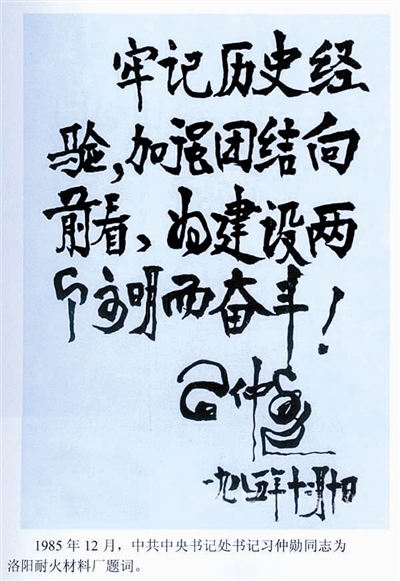 牢记历史经
验,加强团结向
前看、为建设两
个文明而奋斗!
习仲勋
一九八五年十二月十日
1985 年 12 月，中共中央书记处书记习仲勋同志为
洛阳耐火材料厂题词。